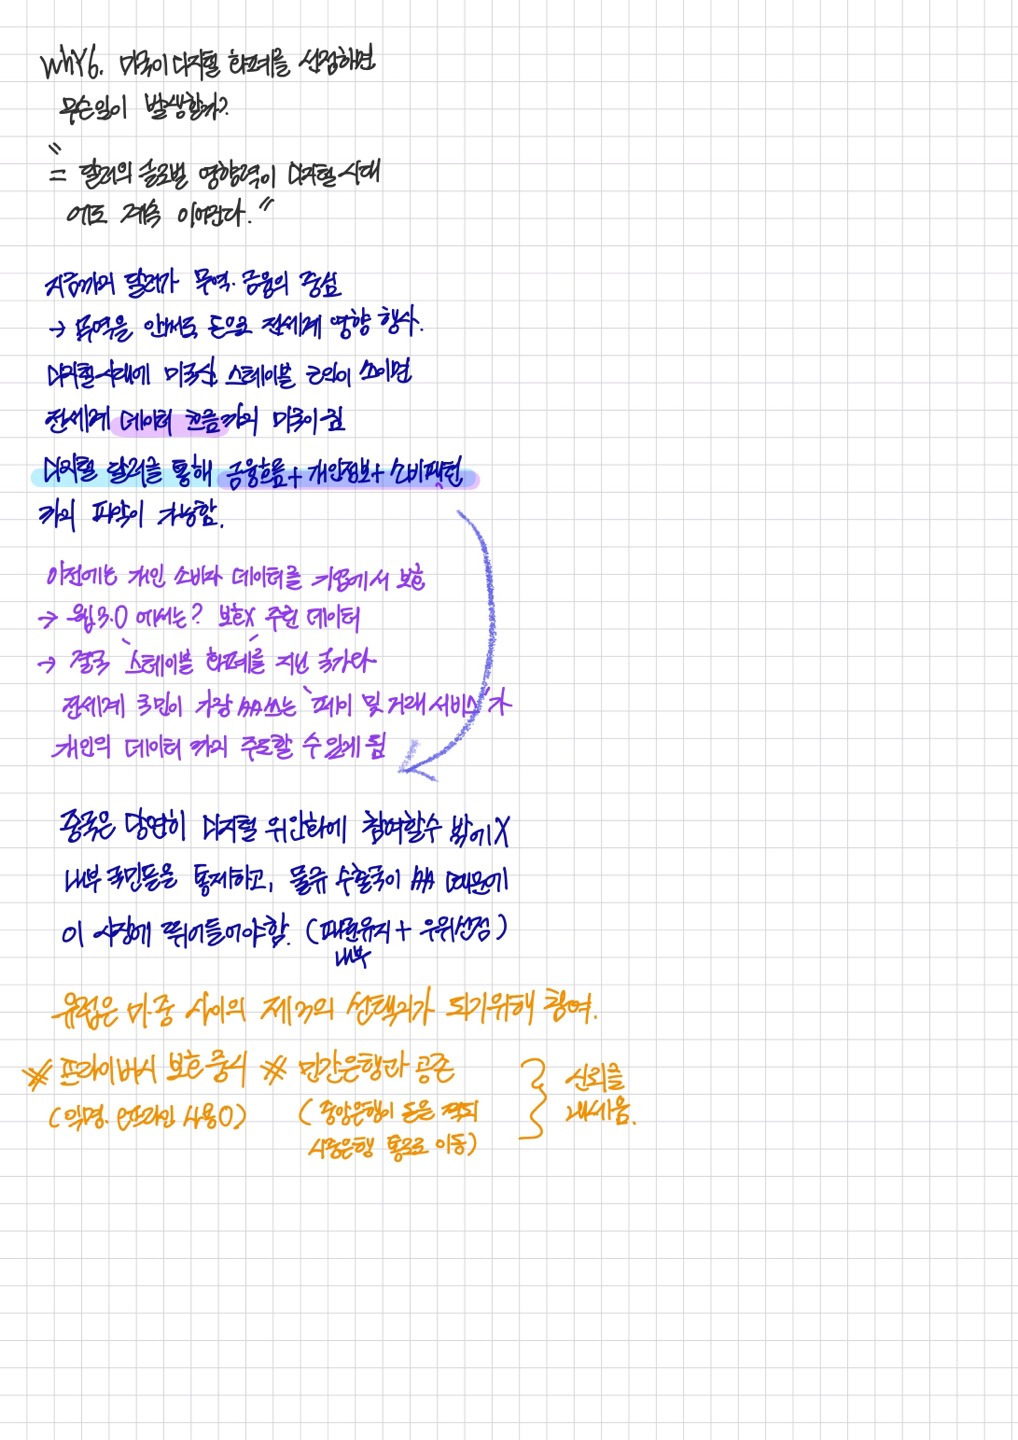 WHY6. 미국이 디지털 화폐를 선점하면
무슨일이 발생할까?
"
= 달러의 글로벌 영향력이 디지털 시대
에도 계속 이어진다."
지금까의 달러가 무역·금융의 중심
→ 무역을 안써도 돈으로 전세계 영향 행사.
디지털시대에 미국산 스테이블 코인이 쓰이면
전세계 데이터 흐름까지 미국이 됨
디지털 달러를 통해 금융흐름+개인정보+소비패턴
까지 파악이 가능함.
이전에는 개인 소비자 데이터를 기업에서 보호
→ 웹3.0 에서는? 보호X 주된 데이터
→ 결국 '스테이블 화폐'를 지닌 국가나
전세계 국민이 가장 많이쓰는 '페이 및 거래 서비스'가
개인의 데이터 까지 주도할 수 있게 됨
중국은 당연히 디지털 위안화에 참여할수 밖에X
내부 국민들은 통제하고, 물류 수출국이 많기 때문에
이 시장에 뛰어들어야함. (패권유지 + 우위선점)
내부
유럽은 미·중 사이의 제3의 선택지가 되기위해 참여.
※ 프라이버시 보호 중시 ※ 민간은행과 공존
(익명. 오프라인 사용O) (중앙은행이 돈은 찍되
시중은행 통로로 이동)
신뢰를
내세움.